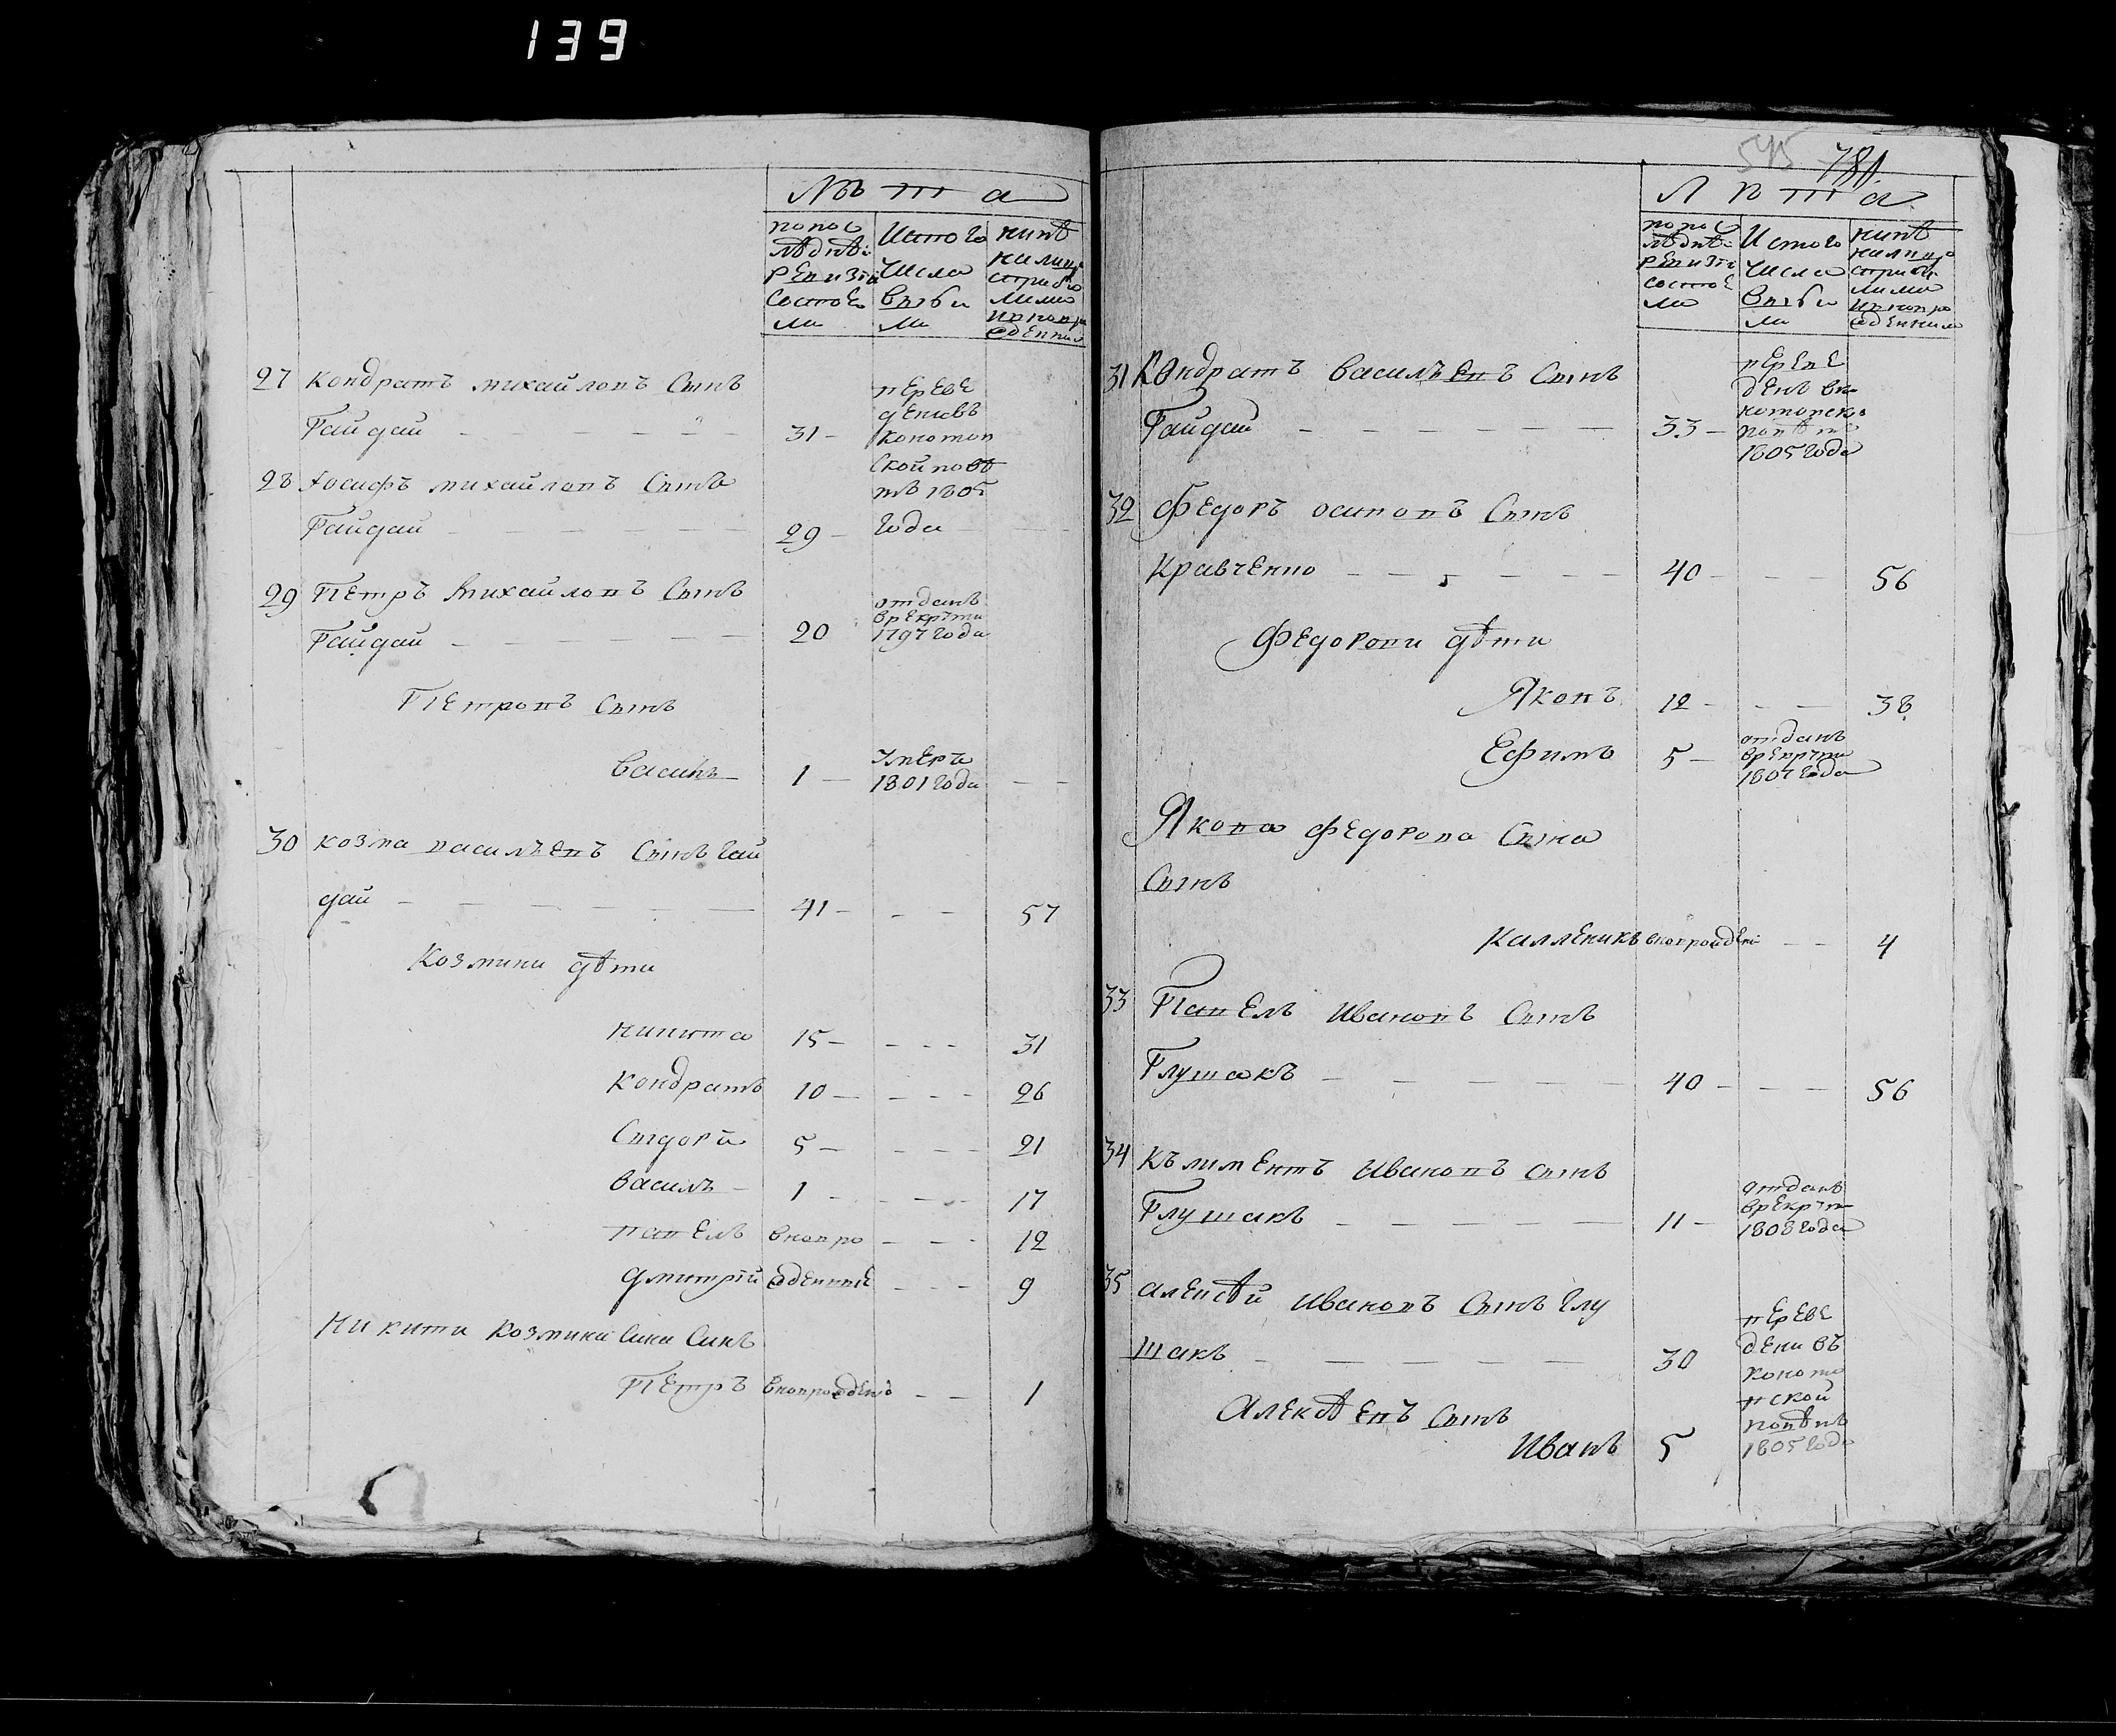 139
Лѣта
попос
лѣднѣ:
ревизіи
состоя
ли
Истого
числа
выбы
ли
нинѣ
налицо
сприбы
лими
ивновро
жденнимъ
27 Кондратъ михайловъ Сынъ
Гайдай — 31 —
переве
денивъ
конотоп
ской повѣ
тъ 1805
года
28 Іосифъ михайловъ Сынъ
Гайдай — 29 —
29 Петръ Михайловъ Сынъ
Гайдай — 20
отданъ
врекруты
1797 года
Петровъ Сынъ
Василь — 1 —
Умеръ
1801 года
30 козма васильевъ Сынъ Гай
дай — 41 — 57
Козмини дѣти
Никита 15 — 31
Кондратъ 10 — 26
Сыдоръ 5 — 21
Василь 1 — 17
павелъ вновро — 12
Дмитрій жденные — 9
Никити Козмина Сина Синъ
Петръ вноврожденъ — 1
545 781
Лѣта
попос
лѣднѣ:
ревизіи
состоя
ли
Истого
числа
выбы
ли
нинѣ
налицо
сприбы
лими
ивновро
жденними
31 Кондратъ Васильевъ Сынъ
Гайдай — 33 —
переве
денъ вко
нотопско
повѣтъ
1805 года
32 Федоръ осиповъ Сынъ
Кравченко — 40 — 56
Федорови дѣти
Яковъ 12 — 38
Ефимъ 5 —
отданъ
врекруты
1807 года
Якова Федорова Сына
Сынъ
Калленикъ вноврожден — 4
33 Павелъ Ивановъ Сынъ
Глушакъ — 40 — 56
34 Къмиментъ Ивановъ сынъ
Глушакъ — 11 —
отданъ
врекрут
1808 года
35 алексѣй Ивановъ Сынъ Глу
шакъ — 30
переве
дени въ
коното
пской
повѣтъ
1805 года
Алексѣевъ Сынъ
Иванъ 5